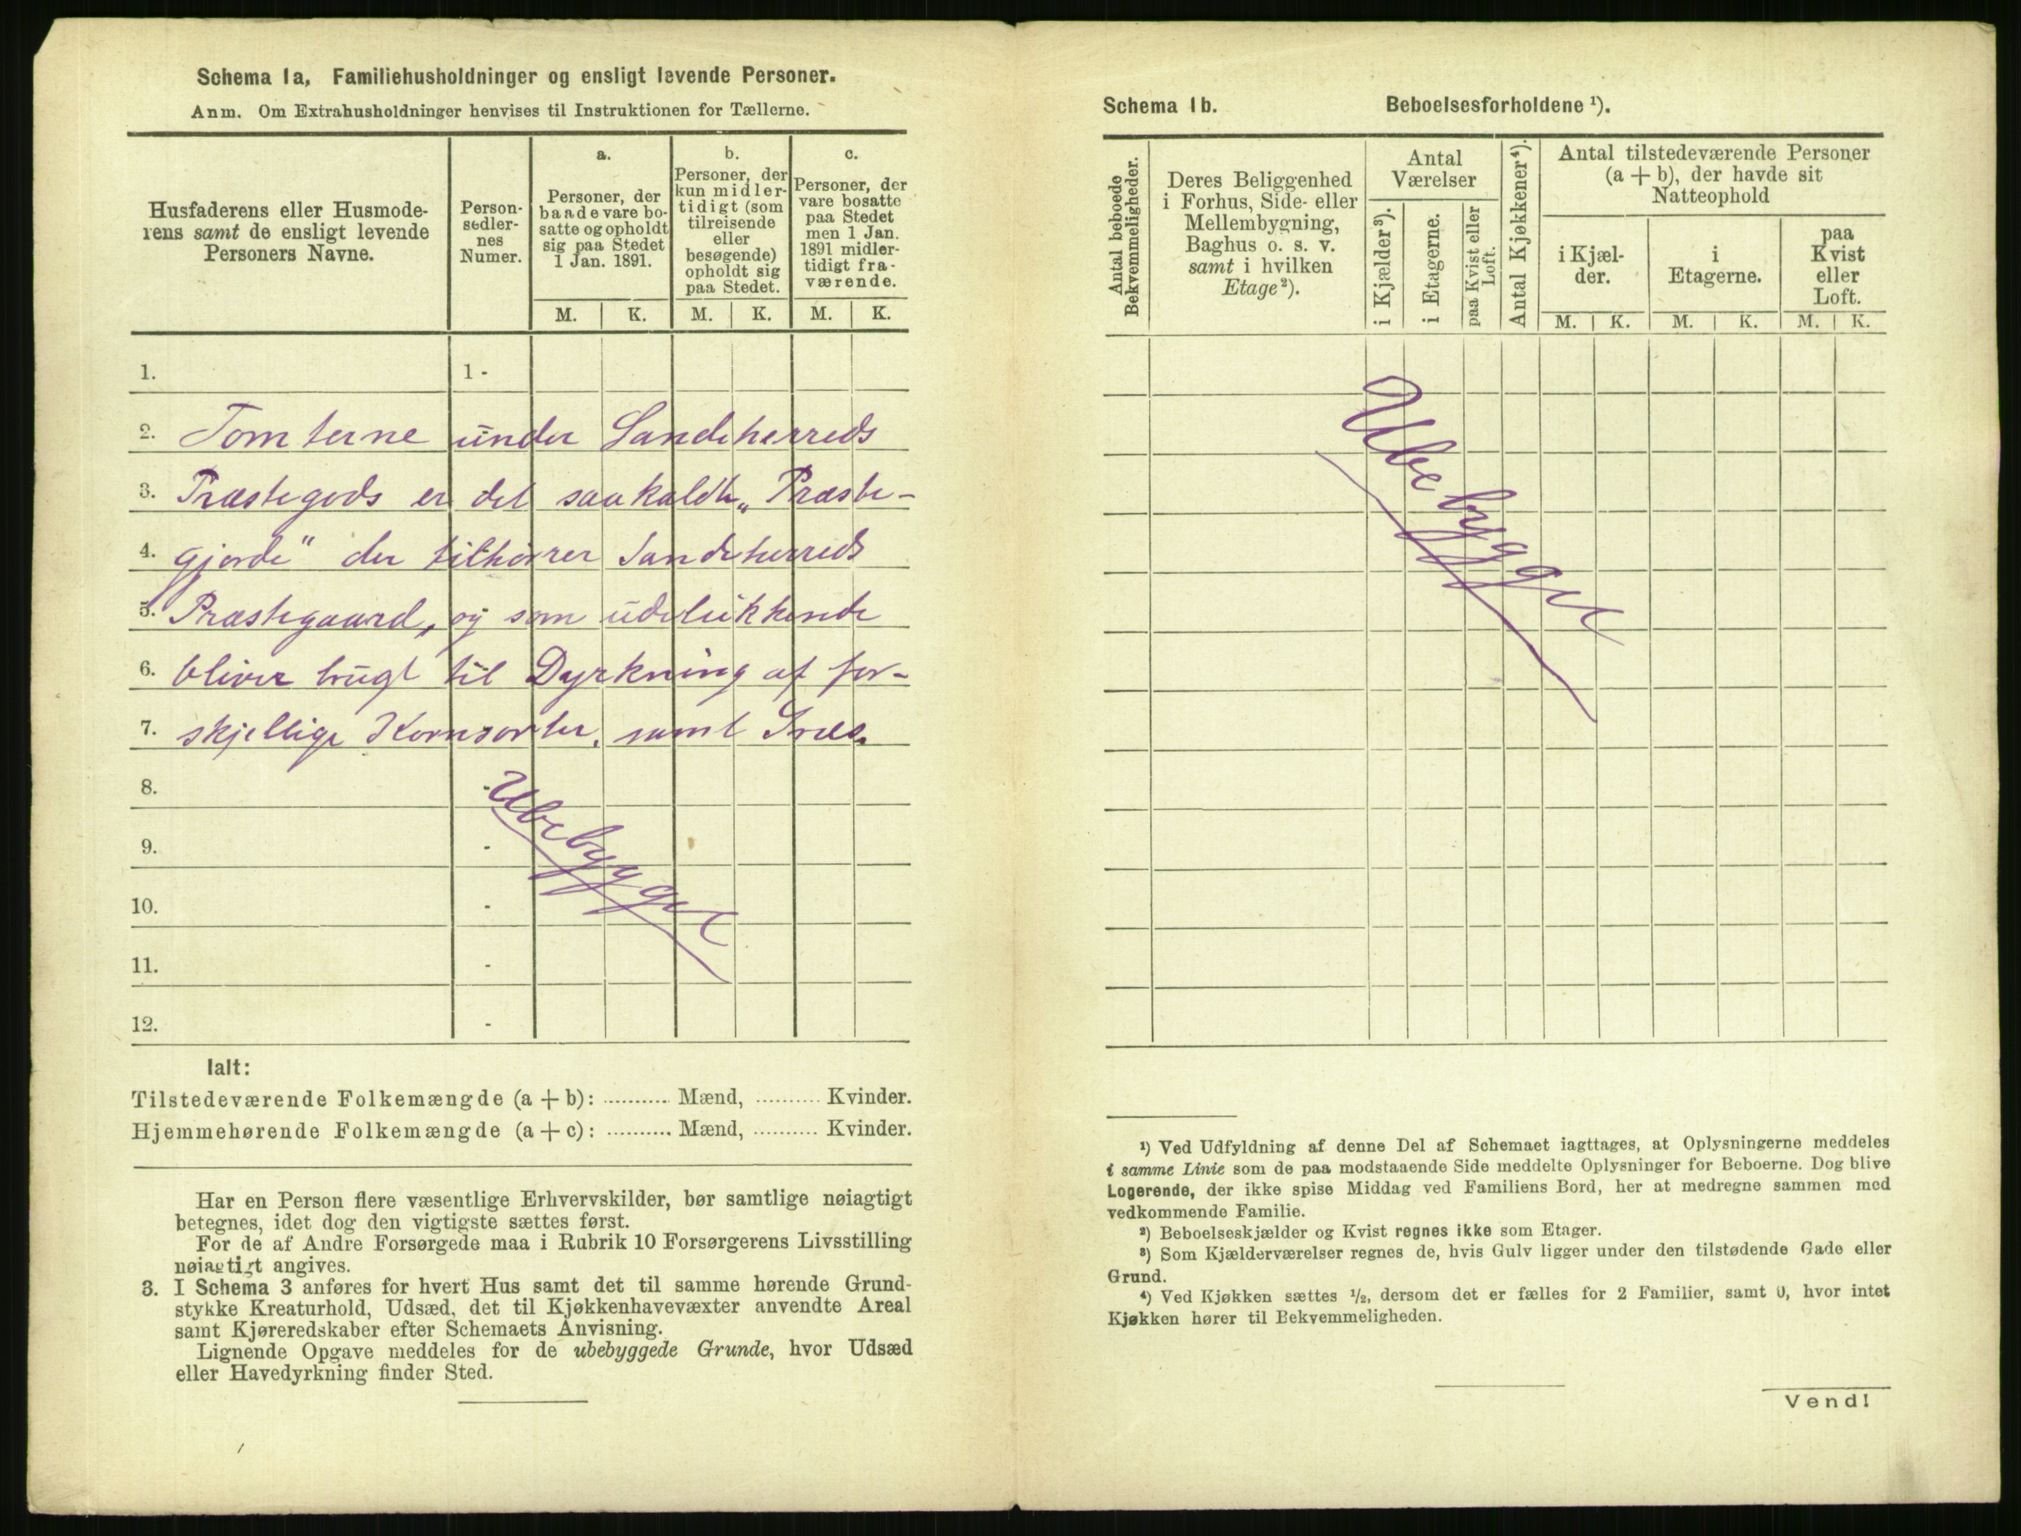 Schema 1a, Familiehusholdninger og ensligt levende Personer.
Anm. Om Extrahusholdninger henvises til Instruktionen for Tællerne.
Husfaderens eller Husmode-
rens samt de ensligt levende
Personers Navne.
Person-
sedler-
nes
Numer.
a.
Personer, der
baade vare bo-
satte og opholdt
sig paa Stedet
1 Jan. 1891.
M. K.
b.
Personer, der
kun midler-
tidigt (som
tilreisende
eller
besøgende)
opholdt sig
paa Stedet.
M. K.
c.
Personer, der
vare bosatte
paa Stedet
men 1 Jan.
1891 midler-
tidigt fra-
værende.
M. K.
1. 1 -
2. Tomterne under Sandeherreds
3. Præstegods er det saakaldte „Præste-
4. gjorde" der tilhører Sandeherreds
5. Præstegaard, og som udelukkende
6. bliver brugt til Dyrkning af for-
7. skjellige Kornsorter, samt Græs.
8. -
9. -
10. -
11. -
12. -
Ubebygget
Ialt:
Tilstedeværende Folkemængde (a + b): .......... Mænd, .......... Kvinder.
Hjemmehørende Folkemængde (a + c): .......... Mænd, .......... Kvinder.
Har en Person flere væsentlige Erhvervskilder, bør samtlige nøiagtigt
betegnes, idet dog den vigtigste sættes først.
For de af Andre Forsørgede maa i Rubrik 10 Forsørgerens Livsstilling
nøiagtigt angives.
3. I Schema 3 anføres for hvert Hus samt det til samme hørende Grund-
stykke Kreaturhold, Udsæd, det til Kjøkkenhavevæxter anvendte Areal
samt Kjøreredskaber efter Schemaets Anvisning.
Lignende Opgave meddeles for de ubebyggede Grunde, hvor Udsæd
eller Havedyrkning finder Sted.
Schema 1b. Beboelsesforholdene ¹).
Antal beboede
Bekvemmeligheder.
Deres Beliggenhed
i Forhus, Side- eller
Mellembygning,
Baghus o. s. v.
samt i hvilken
Etage²).
Antal
Værelser
i Kjælder³).
i Etagerne.
paa Kvist eller
Loft.
Antal Kjøkkener⁴).
Antal tilstedeværende Personer
(a + b), der havde sit
Natteophold
i Kjæl-
der.
M. K.
i
Etagerne.
M. K.
paa
Kvist
eller
Loft.
M. K.
Ubebygget
¹) Ved Udfyldning af denne Del af Schemaet iagttages, at Oplysningerne meddeles
i samme Linie som de paa modstaaende Side meddelte Oplysninger for Beboerne. Dog blive
Logerende, der ikke spise Middag ved Familiens Bord, her at medregne sammen med
vedkommende Familie.
²) Beboelseskjælder og Kvist regnes ikke som Etager.
³) Som Kjælderværelser regnes de, hvis Gulv ligger under den tilstødende Gade eller
Grund.
⁴) Ved Kjøkken sættes ½, dersom det er fælles for 2 Familier, samt 0, hvor intet
Kjøkken hører til Bekvemmeligheden.
Vend!